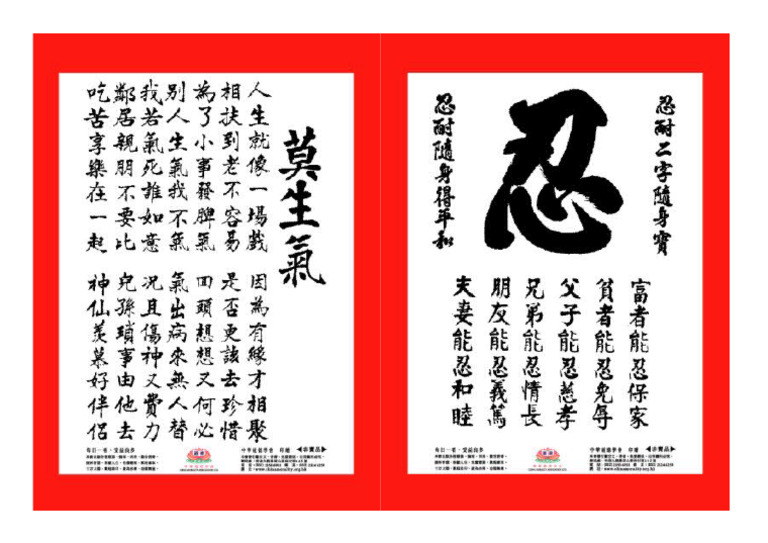 莫生氣
人生就像一場戲 因為有緣才相聚
相扶到老不容易 是否更該去珍惜
為了小事發脾氣 回頭想想又何必
別人生氣我不氣 氣出病來無人替
我若氣死誰如意 況且傷神又費力
鄰居親朋不要比 兒孫瑣事由他去
吃苦享樂在一起 神仙羨慕好伴侶
每日一看,受益良多
中華道德學會 印贈 ◀非賣品▶
忍耐二字隨身寶
忍
忍耐隨身得平和
富者能忍保家
貧者能忍免辱
父子能忍慈孝
兄弟能忍情長
朋友能忍義篤
夫妻能忍和睦
每日一看,受益良多
中華道德學會 印贈 ◀非賣品▶